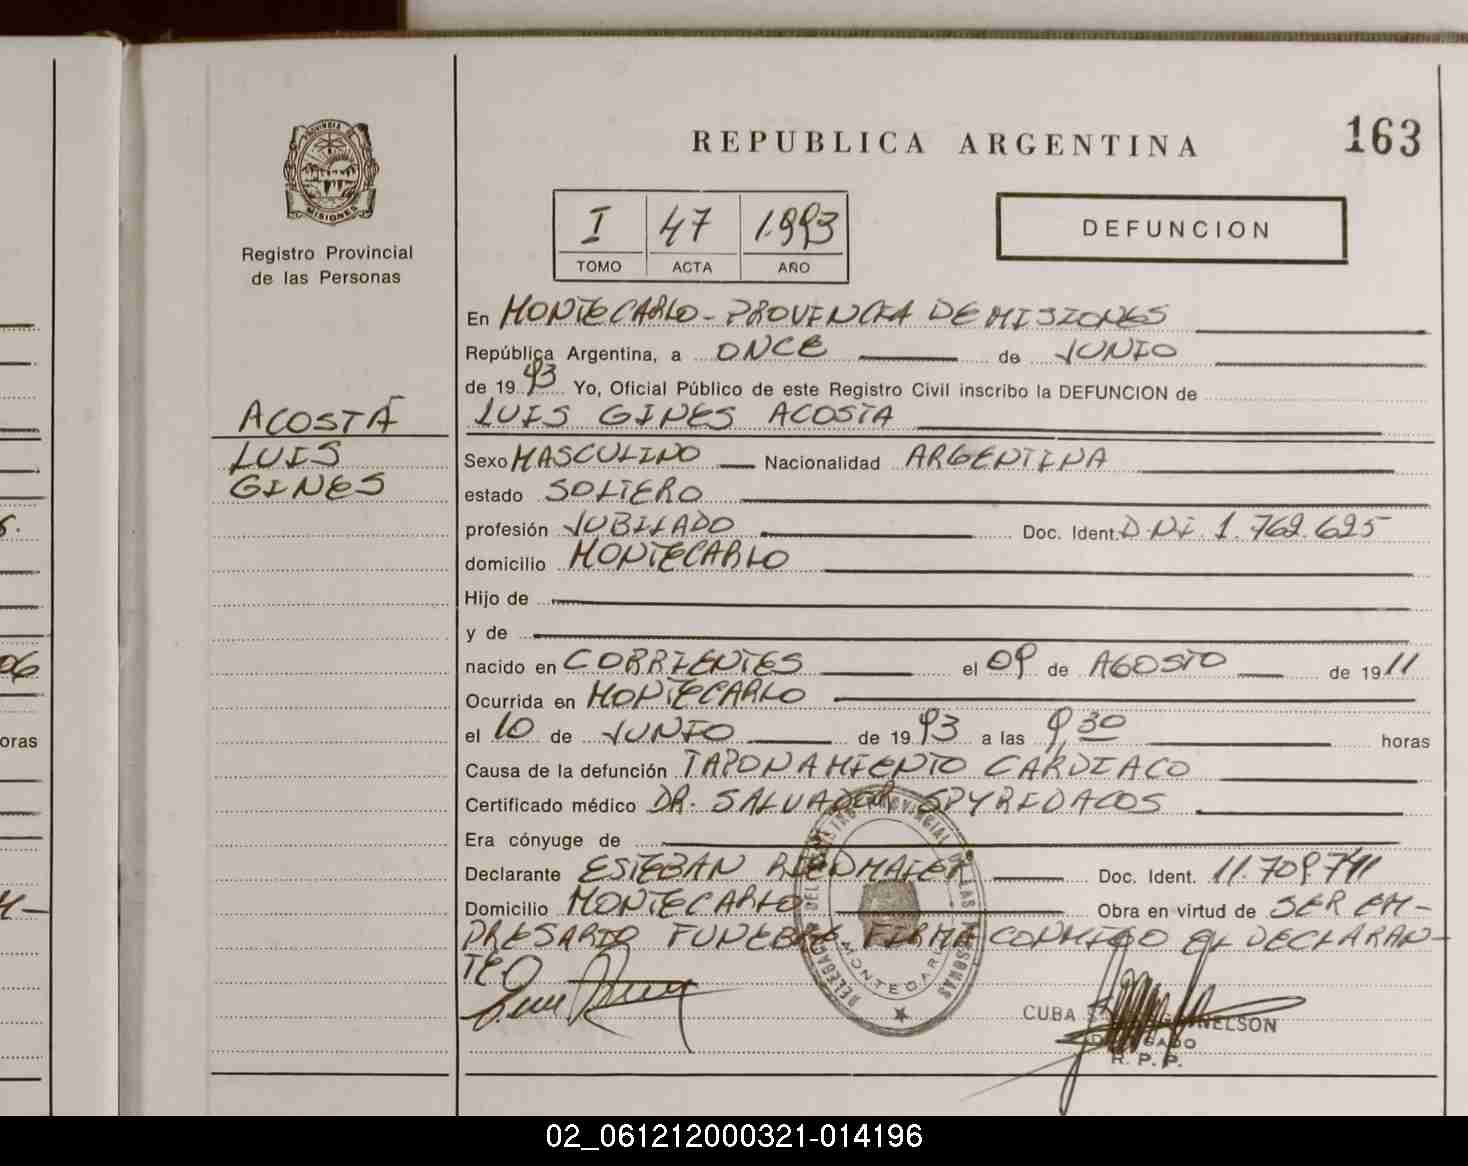 REPUBLICA ARGENTINA
163
PROVINCIA DE
MISIONES
Registro Provincial
de las Personas
I 47 1993
TOMO ACTA AÑO
DEFUNCION
En MONTECARLO - PROVINCIA DE MISIONES
República Argentina, a ONCE de JUNIO
de 1993 Yo, Oficial Público de este Registro Civil inscribo la DEFUNCION de
ACOSTA
LUIS
GINES
LUIS GINES ACOSTA
Sexo MASCULINO Nacionalidad ARGENTINA
estado SOLTERO
profesión JUBILADO Doc. Ident. D.N.I. 1.762.625
domicilio MONTECARLO
Hijo de
y de
nacido en CORRIENTES el 09 de AGOSTO de 1911
Ocurrida en MONTECARLO
el 10 de JUNIO de 1993 a las 9,30 horas
Causa de la defunción TAPONAMIENTO CARDIACO
Certificado médico DR. SALVADOR SPYRIDACOS
Era cónyuge de
Declarante ESTEBAN RIEDMAIER Doc. Ident. 11.709.741
Domicilio MONTECARLO Obra en virtud de SER EM-
PRESARIO FUNEBRE FIRMA CONMIGO EL DECLARAN-
TE
MONTECARLO
CUBA NELSON
DELEGADO
R. P. P.
06
oras
02_061212000321-014196